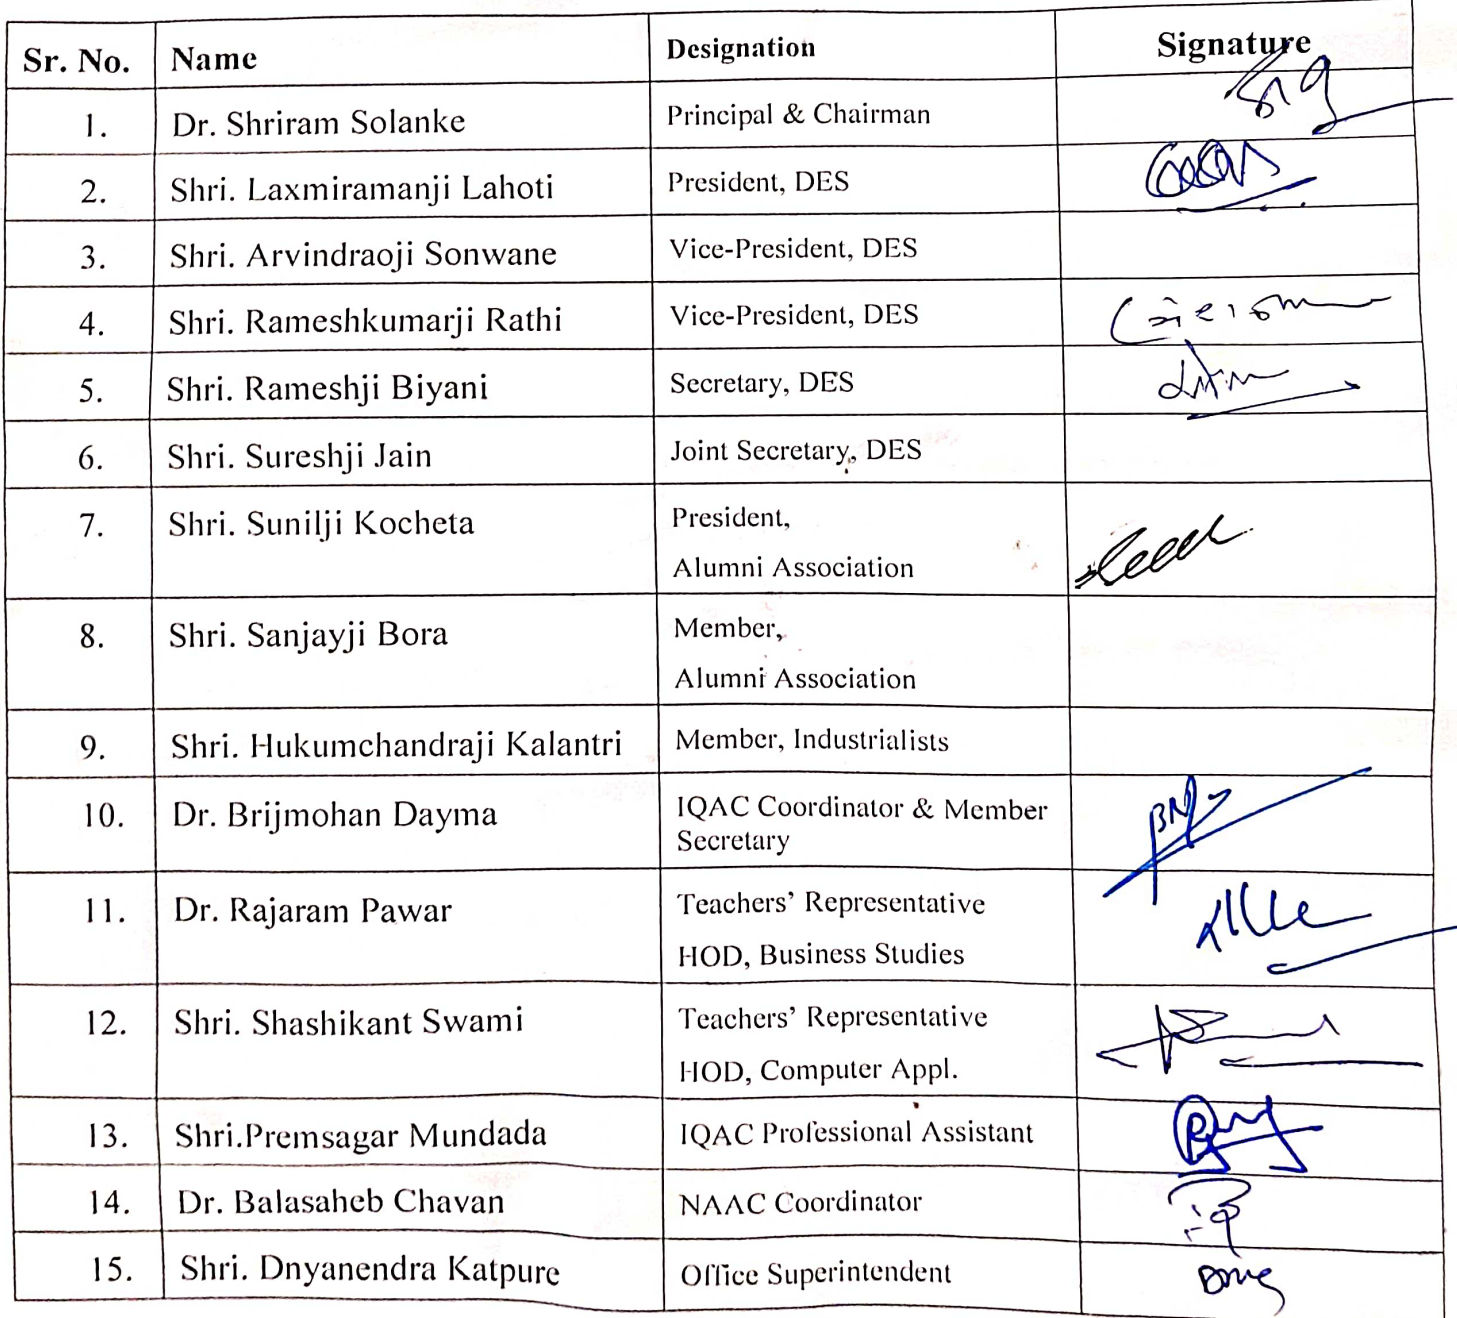 Sr. No. Name Designation Signature
1. Dr. Shriram Solanke Principal & Chairman
2. Shri. Laxmiramanji Lahoti President, DES
3. Shri. Arvindraoji Sonwane Vice-President, DES
4. Shri. Rameshkumarji Rathi Vice-President, DES
5. Shri. Rameshji Biyani Secretary, DES
6. Shri. Sureshji Jain Joint Secretary, DES
7. Shri. Sunilji Kocheta President,
Alumni Association
8. Shri. Sanjayji Bora Member,
Alumni Association
9. Shri. Hukumchandraji Kalantri Member, Industrialists
10. Dr. Brijmohan Dayma IQAC Coordinator & Member
Secretary
11. Dr. Rajaram Pawar Teachers' Representative
HOD, Business Studies
12. Shri. Shashikant Swami Teachers' Representative
HOD, Computer Appl.
13. Shri.Premsagar Mundada IQAC Professional Assistant
14. Dr. Balasaheb Chavan NAAC Coordinator
15. Shri. Dnyanendra Katpure Office Superintendent